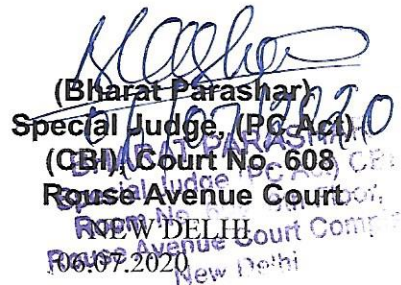 (Bharat Parashar)
Special Judge, (PC Act)
(CBI), Court No. 608
Rouse Avenue Court
NEW DELHI
06.07.2020
BHARAT PARASHAR
Special Judge (PC Act) CBI
Room No.
Rouse Avenue Court Comple
New Delhi